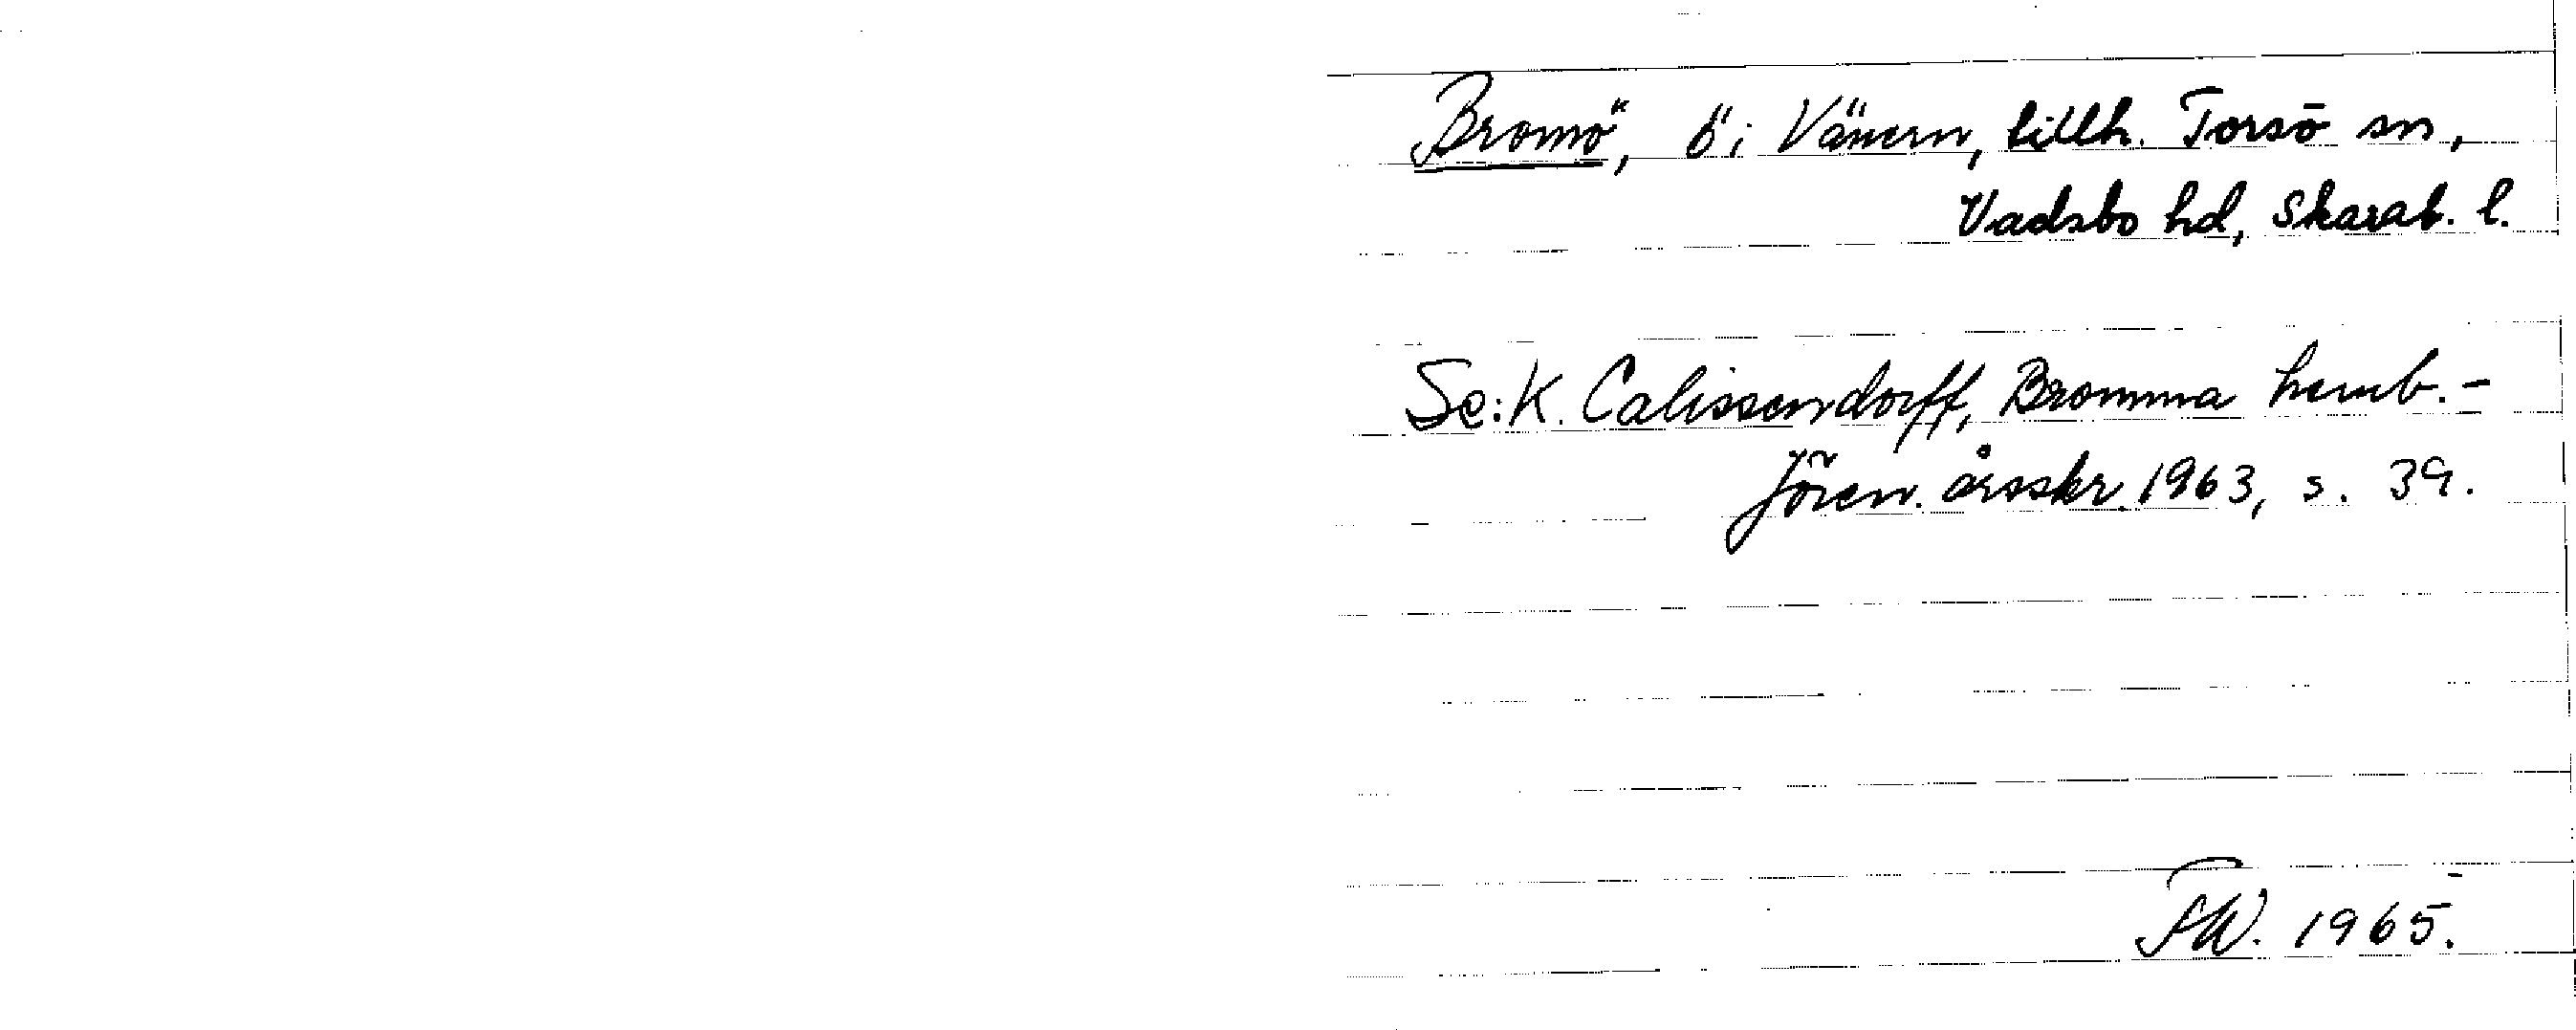 Bromö, ö i Vänern, tillh. Torsö sn,
Vadsbo hd, Skarab. l.
Se: K. Calissendorff, Bromma hemb.-
fören. årsskr. 1963, s. 39.
1965.